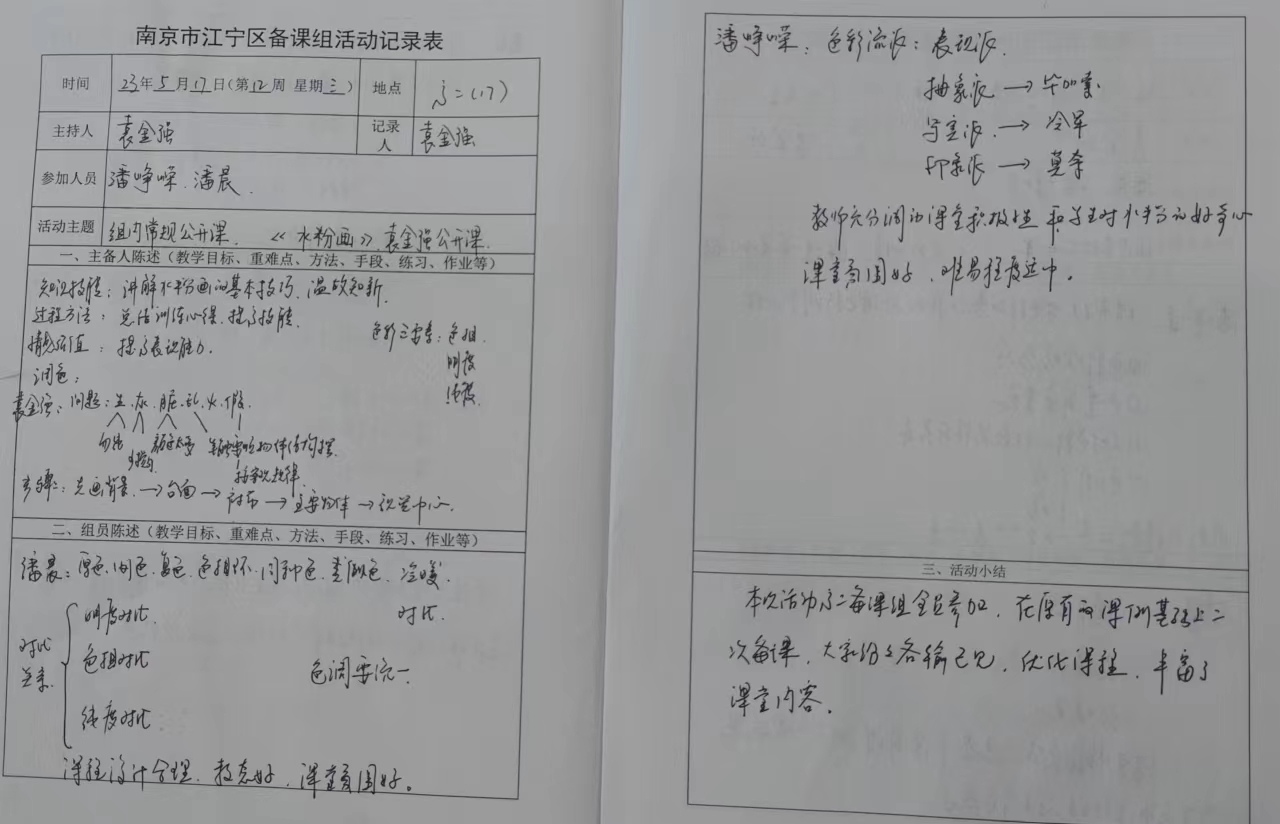 南京市江宁区备课组活动记录表
时间 23年5月17日(第12周 星期三) 地点 高二(17)
主持人 袁金强 记录人 袁金强
参加人员 潘峥嵘、潘晨.
活动主题 组内常规公开课. 《水粉画》袁金强公开课.
一、主备人陈述(教学目标、重难点、方法、手段、练习、作业等)
知识技能: 讲解水粉画的基本技巧、温故知新.
过程方法: 总结训练心得、提高技能.
色彩三要素: 色相.
明度
纯度.
情感价值: 提高表现能力.
调色:
袁金强: 问题: 生、灰、脏、乱、火、假.
步骤: 先画背景 → 台面 → 衬布 → 主要物体 → 视觉中心.
二、组员陈述(教学目标、重难点、方法、手段、练习、作业等)
潘晨: 原色、间色、复色、色相环、同种色、类似色、冷暖
对比.
对比关系
明度对比.
色相对比
纯度对比
色调要统一.
课程设计合理、教态好、课堂氛围好。
潘峥嵘: 色彩流派: 表现派.
抽象派 → 毕加索.
写实派. → 冷军
印象派 → 莫奈
教师充分调动课堂积极性和学生对水粉的好奇心
课堂氛围好, 难易程度适中。
三、活动小结
本次活动高二备课组全员参加, 在原有的课例基础上二
次备课, 大家纷纷各输己见, 优化课程, 丰富了
课堂内容.